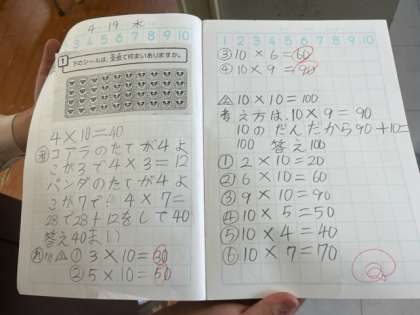 4 19 水
3 4 5 6 7 8 9 10
1 下のシールは、全部で何まいありますか。
4×10=40
コアラのたてが4よ
こが3で4×3=12
パンダのたてが4よ
こが7で 4×7=
28で28+12をして40
答え40まい
① 3×10=30
② 5×10=50
1 2 3 4 5 6 7 8 9 10
③ 10×6=60
④ 10×9=90
10×10=100
考え方は、10×9=90
10のだんだから90+10=
100 答え100
① 2×10=20
② 6×10=60
③ 9×10=90
④ 10×5=50
⑤ 10×4=40
⑥ 10×7=70